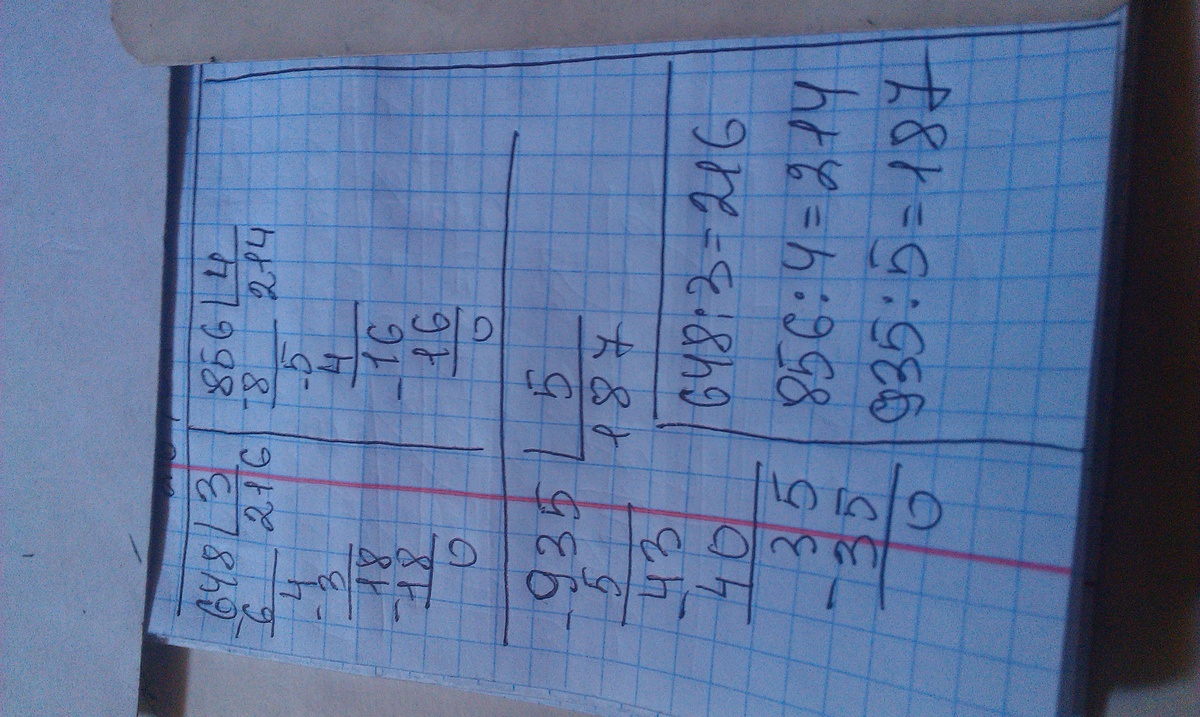 648 | 3
-6 216
4
-3
18
-18
0
856 | 4
-8 214
-5
4
-16
16
0
-935 | 5
5 187
-43
40
35
-35
0
648:3=216
856:4=214
935:5=187